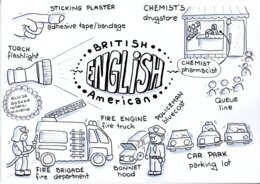 STICKING PLASTER
adhesive tape/bandage
CHEMIST'S
drugstore
TORCH
flashlight
BRITISH
ENGLISH
American
CHEMIST
pharmacist
QUEUE
line
POLICEMAN
bluecoat
FIRE ENGINE
fire truck
FIRE BRIGADE
fire department
BONNET
hood
CAR PARK
parking lot